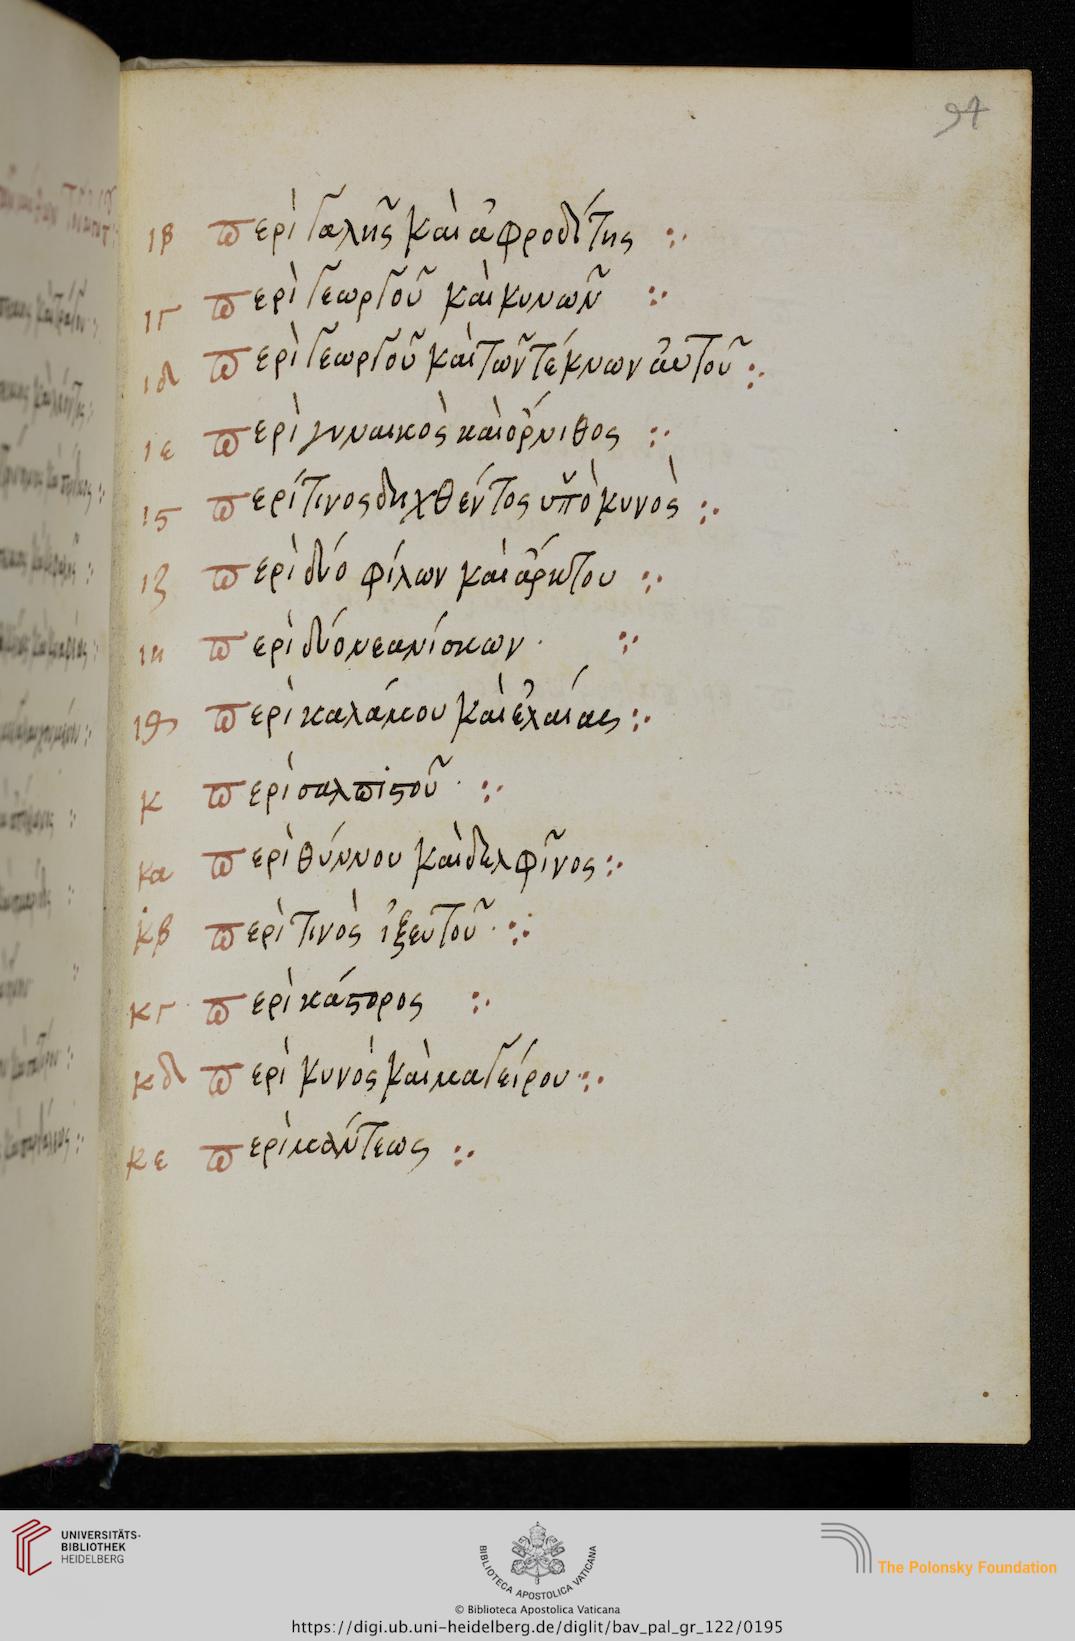 94
ιβ περὶ γαλῆς καὶ ἀφροδίτης :·
ιγ περὶ γεωργοῦ καὶ κυνῶν :·
ιδ περὶ γεωργοῦ καὶ τῶν τέκνων ἀυτοῦ :·
ιε περὶ γυναικὸς καὶ ὄρνιθος :·
ιϛ περί τινος δηχθέντος ὑπὸ κυνὸς :·
ιζ περὶ δύο φίλων καὶ ἄρκτου :·
ιη περὶ δύο νεανίσκων · :·
ιθ περὶ καλάμου καὶ ἐλαίας :·
κ περὶ σαλπιϛοῦ · :·
κα περὶ θύννου καὶ δελφῖνος :·
κβ περὶ τινὸς ἰξευτοῦ · :·
κγ περὶ κάϛορος :·
κδ περὶ κυνὸς καὶ μαγείρου :·
κε περὶ μάντεως :·
UNIVERSITÄTS-
BIBLIOTHEK
HEIDELBERG
BIBLIOTECA APOSTOLICA VATICANA
The Polonsky Foundation
© Biblioteca Apostolica Vaticana
https://digi.ub.uni-heidelberg.de/diglit/bav_pal_gr_122/0195